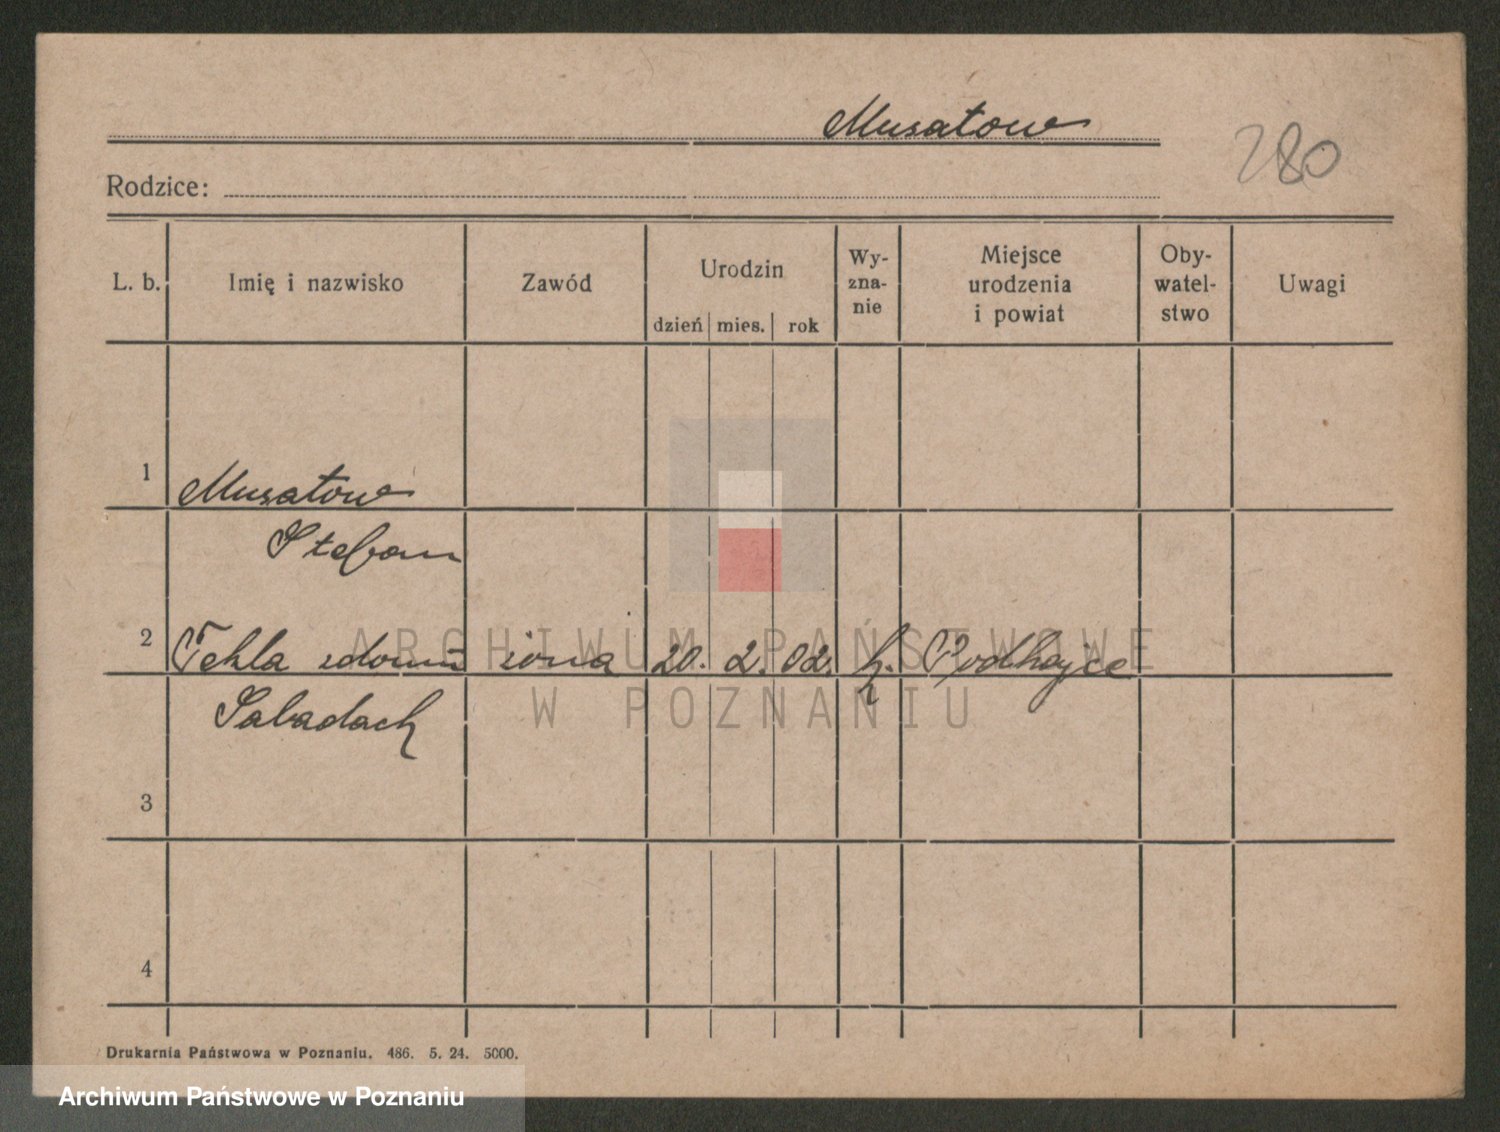 Musatow
280
Rodzice:
L. b.
Imię i nazwisko
Zawód
Urodzin
dzień mies. rok
Wy-
zna-
nie
Miejsce
urodzenia
i powiat
Oby-
watel-
stwo
Uwagi
1 Musatow
Stefan
2 Tekla zdomu żona 20. 2. 02. Podhajce
Sabadach
3
4
Drukarnia Państwowa w Poznaniu. 486. 5. 24. 5000.
ARCHIWUM PAŃSTWOWE
W POZNANIU
Archiwum Państwowe w Poznaniu